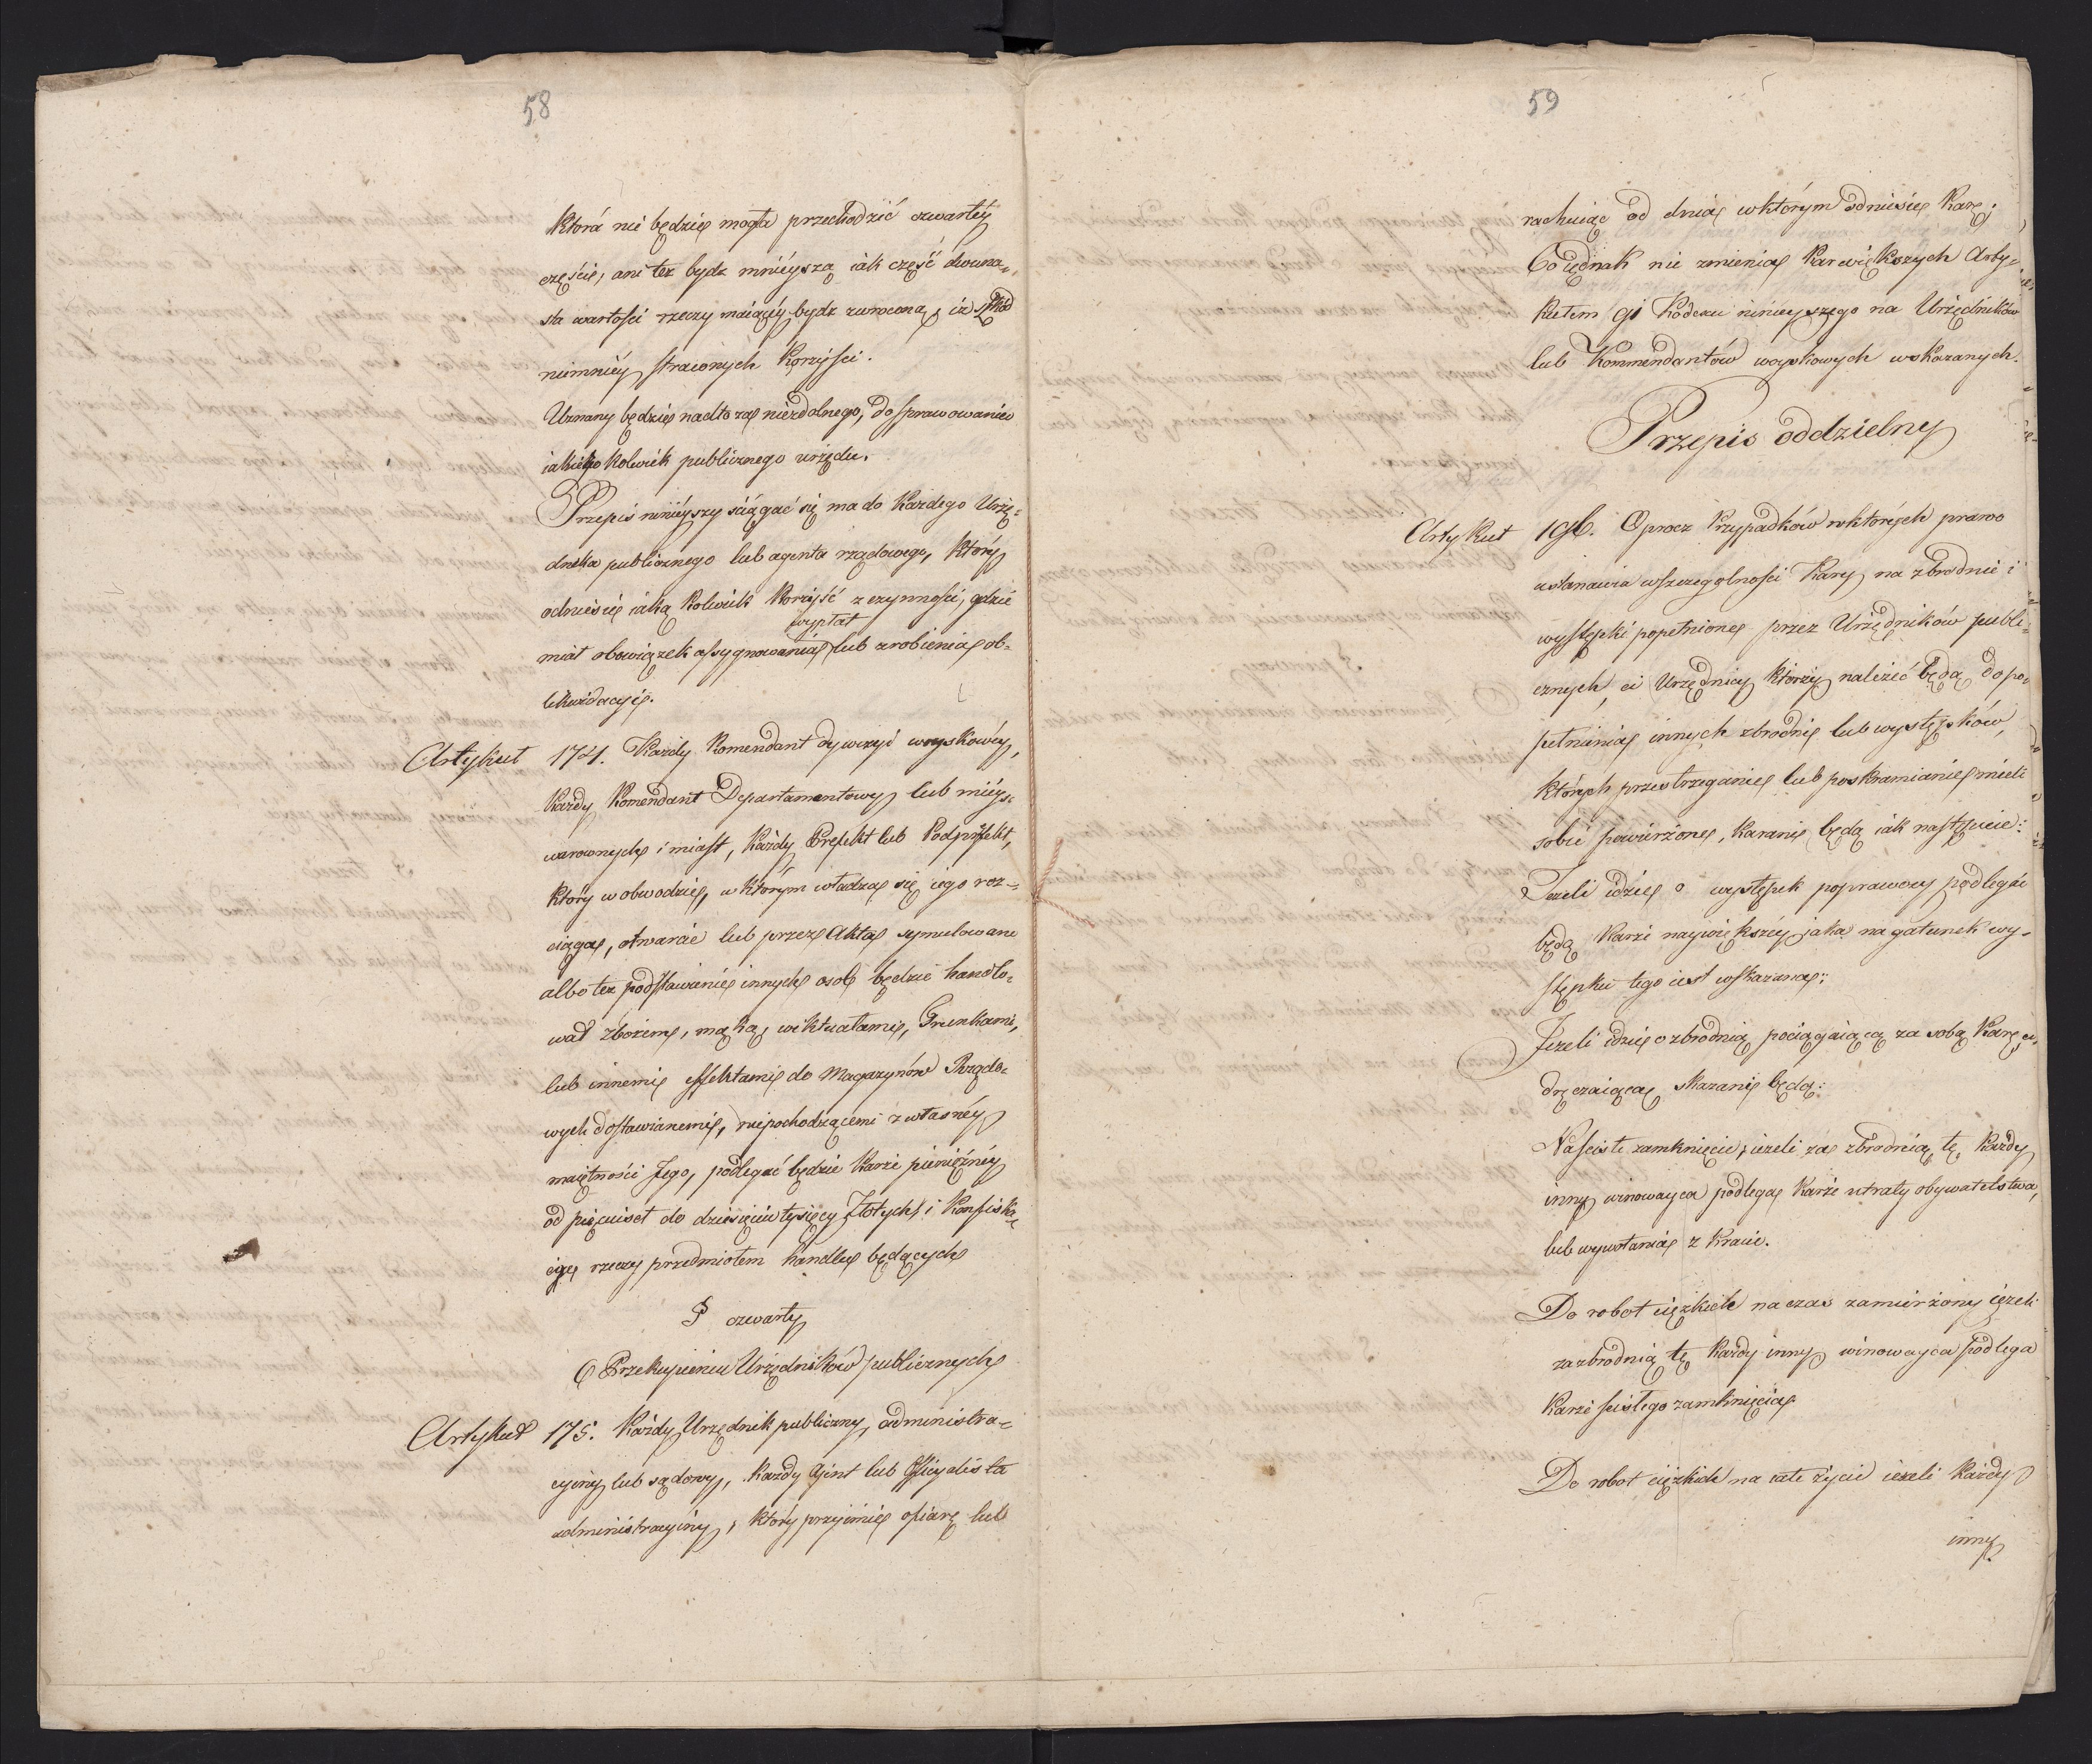 58
która nie będzie mogła przechodzić czwartéy
częście, ani też bydz mniéyszą iak część dwuna„
sta wartości rzeczy maiącéy bydz zwróconą, iż szkód
niemniéy straconych korzyści.
Uznany będzie nadto za niezdolnego, do sprawowania
iakiegokolwiek publicznego urzędu.
Przepis ninieyszy ściągać się ma do każdego Urzę=
dnika publicznego lub agenta rządowego, który
odniesie iaką kolwiek korzyść z czynności, gdzie
wypłat
miał obowiązek assygnowania lub zrobienia ob=
likwidacyie.
Artykuł 174. Każdy Komendant dywizyi woyskowéy,
każdy Komendant Departamentowy lub mieysc
warownych i miast, każdy Prefekt lub Podprefekt,
który w obwodzie, w którym władza się iego roz=
ciąga, otwarcie lub przez Akta symulowane
albo też podstawienie innych osób będzie handlo=
wał zbożem, mąką, wiktuałami, Trunkami,
lub innemi effektami do Magazynów Rządo=
wych dostawianemi, niepochodzącemi z własnéy
maiętności Jego, podlegać będzie karze pieniężnéy
od pięciuset do dziesięciu tysięcy Złotych i konfiska=
cyi rzeczy przedmiotem handlu będących
§ czwarty
O Przekupieniu Urzędników publicznych
Artykuł 175. Każdy Urzędnik publiczny, administra=
cyiny lub sądowy, każdy Ajent lub Officyalista
administracyiny, który przyimie ofiarę lub
59
rachuiąc od dnia w którym odniesie karę;
Co iednak nie zmienia kar większych Arty=
kułem 91 Kodexu ninieyszego na Urzędników
lub Kommendantów woyskowych wskazanych.
Przepis oddzielny
Artykuł 196. Oprócz Przypadków w których prawo
ustanawia w szczególności kary na zbrodnie i
występki popełnione przez Urzędników publi=
cznych, ci Urzędnicy którzy należeć będą do po=
pełnienia innych zbrodni lub występków,
których przestrzeganie lub poskramianie mieli
sobie powierzone, karani będą iak następuie:
Jeżeli idzie o występek poprawczy podlegać
będą karze naywiększéy jaka na gatunek wy=
stępku tego iest wskazana;
Jeżeli idzie o zbrodnią pociągaiącą za sobą karę u=
dręczaiącą skazani będą:
Na ścisłe zamknięcie, ieżeli za zbrodnią tę każdy
inny winowayca podlega karze utraty obywatelstwa,
lub wywołania z kraiu.
Do robót ciężkich na czas zamierzony ieżeli
za zbrodnią tę każdy inny winowayca podlega
karze ścisłego zamknięcia
Do robót ciężkich na całe życie ieżeli każdy
inny